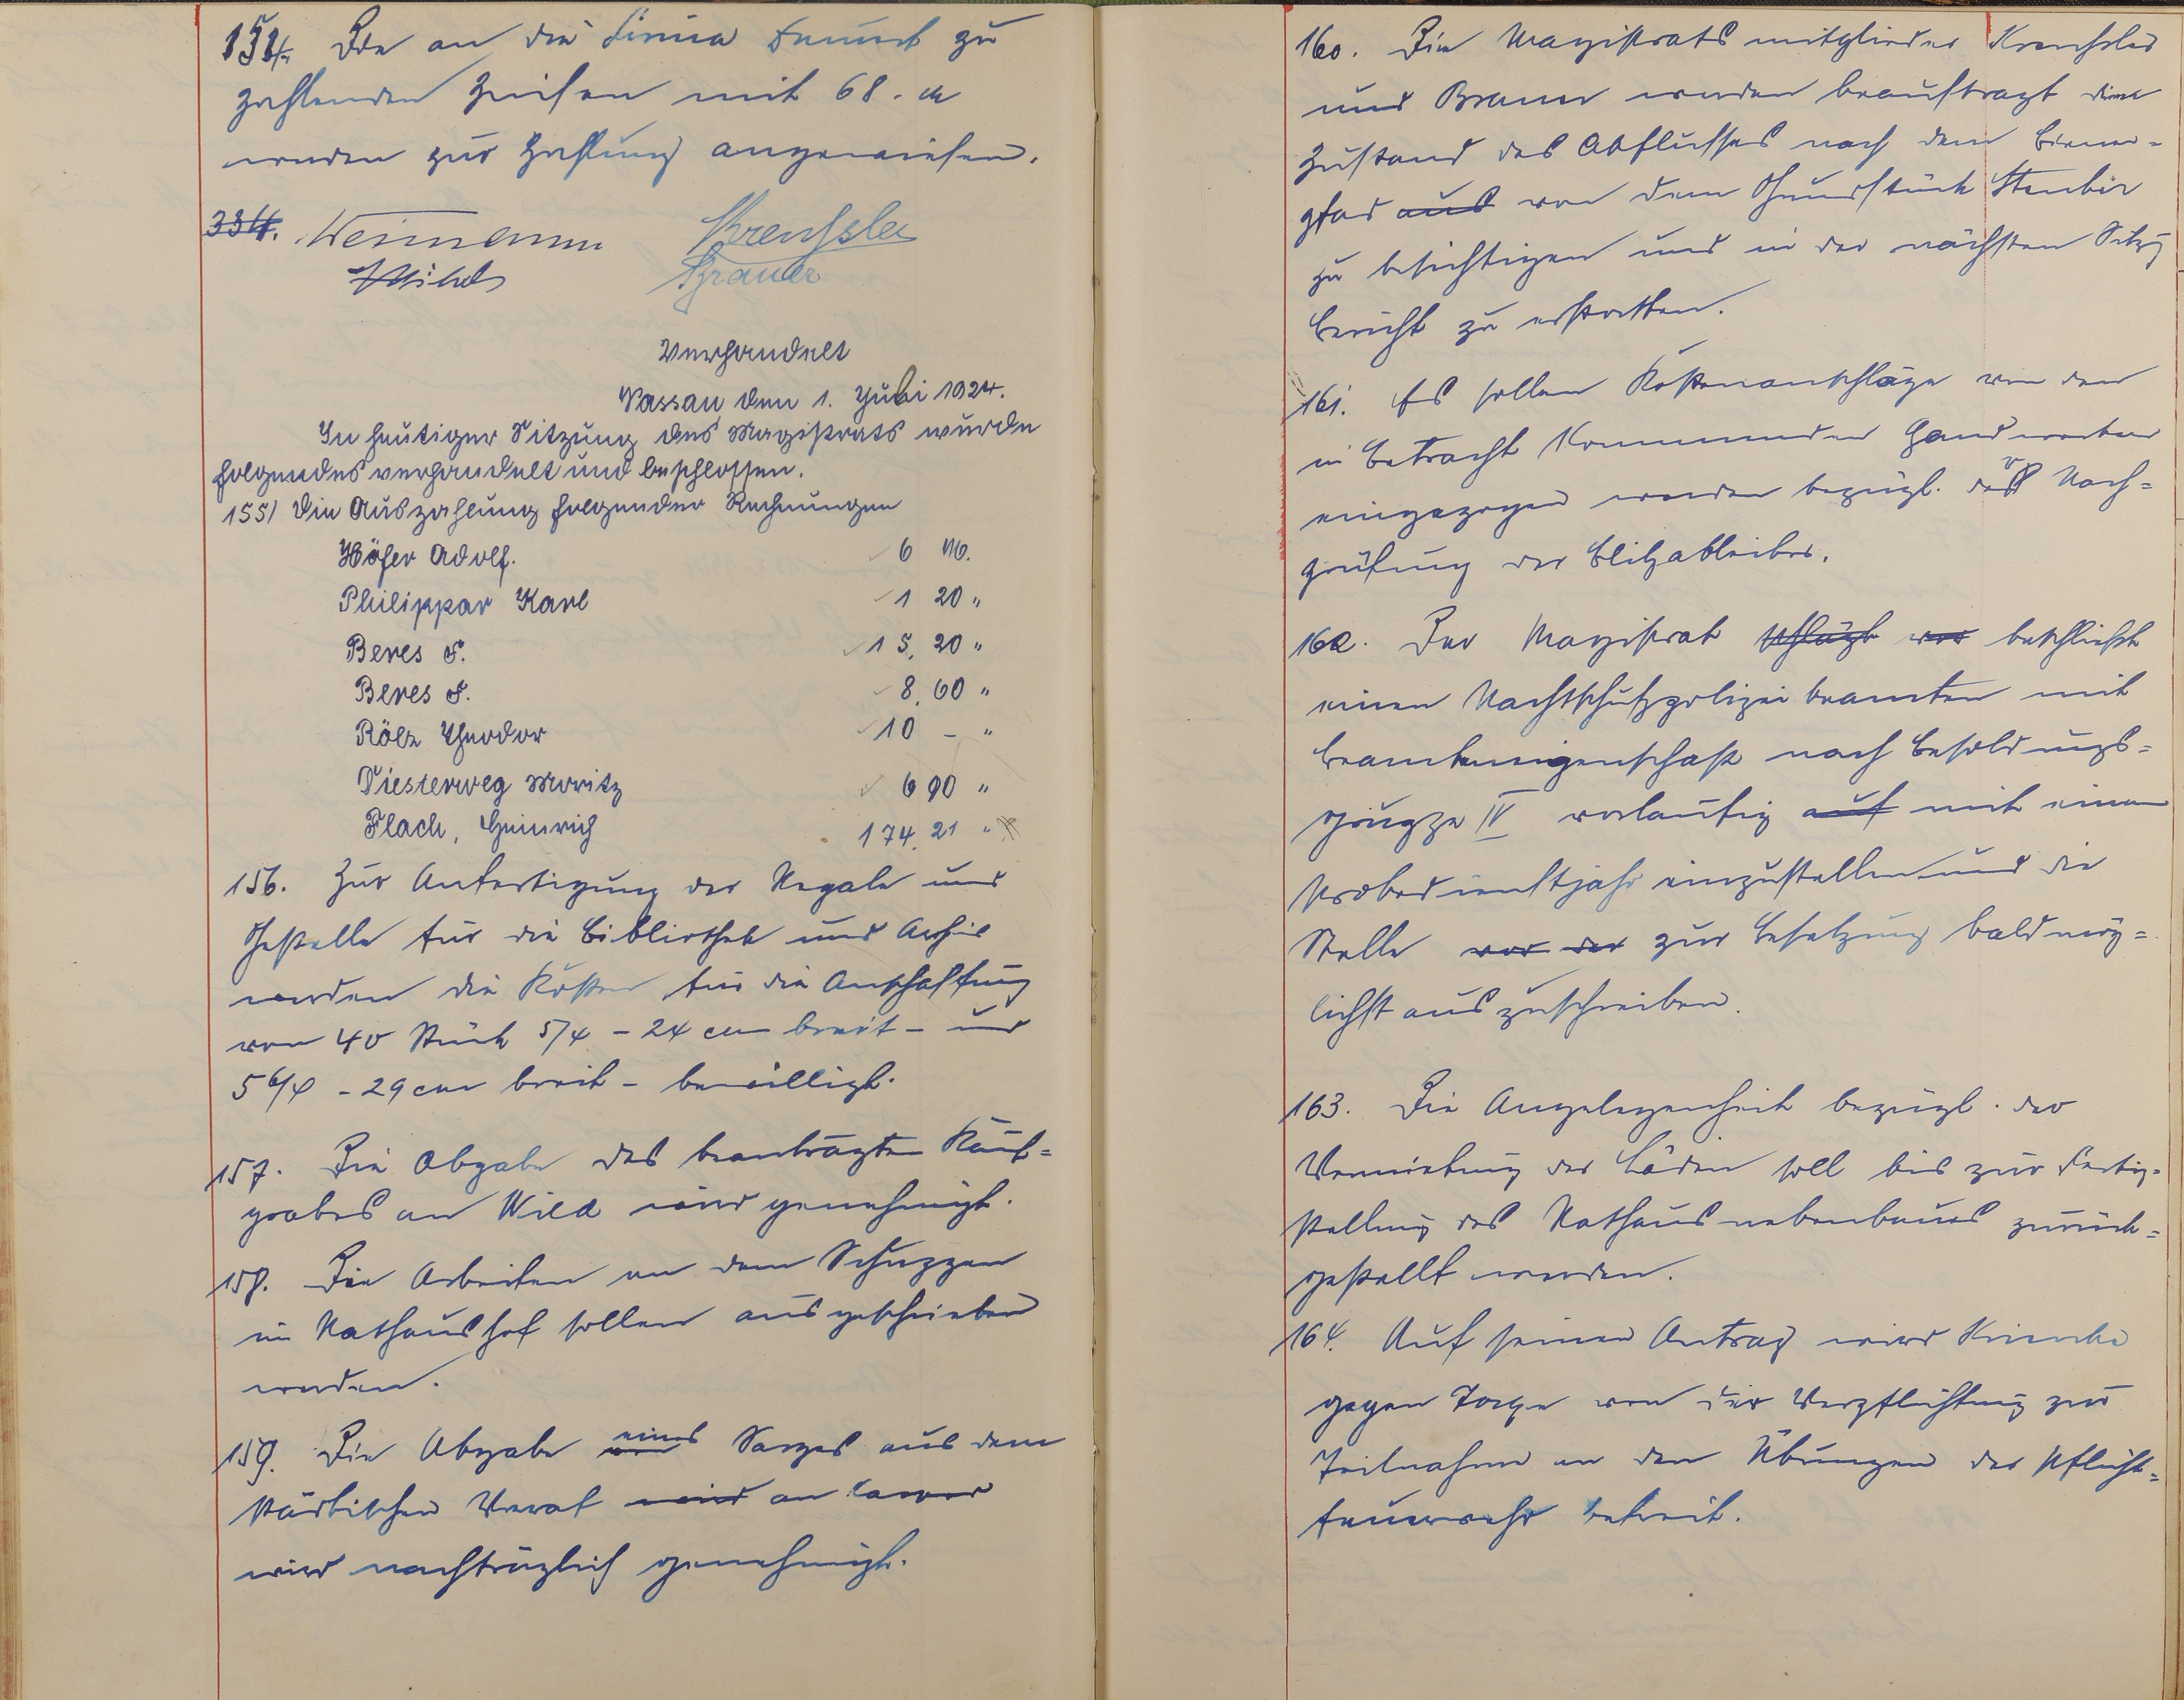 154. Die an die Firma zu
zahlenden Zinsen mit 68. M
werden zur Zahlung angewiesen.
334. Weimann Krenssler
Brauer
Verhandelt
Nassau den 1. Juli 1924.
In heutiger Sitzung des Magistrats wurde
folgendes verhandelt und beschlossen.
155) Die Auszahlung folgender Rechnungen
Höfer Adolf. 6 M.
Philippar Karl 1 20 "
Beres F. 15, 20 "
Beres F. 8, 60 "
Rölz Theodor 10 - "
Diesterweg Moritz 6 90 "
Flach, Heinrich 174. 21 "
156. Zur Anfertigung der Regale und
Gestelle für die Bibliothek und Archiv
werden die Kosten für die Anschaffung
von 40 Stück 5/4 - 24 cm breit - und
5 6/4 - 29 cm breit - bewilligt.
157. Die Abgabe des beantragten Kauf=
grabes an Wild wird genehmigt.
158. Die Arbeiten an dem Schuppen
im Rathaushof sollen ausgeschrieben
werden.
159. Die Abgabe eines Sarges aus dem
städtischen Vorrat wird an
wird nachträglich genehmigt.
160. Die Magistratsmitglieder Krenssler
und Brauer werden beauftragt den
Zustand des Abflusses nach dem
pfad aus von dem Grundstück
zu besichtigen und in der nächsten Sitzg
Bericht zu erstatten.
161. Es sollen Kostenanschläge von den
in Betracht kommenden Handwerkern
eingezogen werden bezügl. der Nach=
prüfung der Blitzableiter.
162. Der Magistrat schlägt vor beschließt
einen Nachtschutzpolizeibeamten mit
Beamteneigenschaft nach Besoldungs=
gruppe IV vorläufig auf mit einem
Probedienstjahr einzustellen und die
Stelle vor der zur Besetzung baldmög=
lichst auszuschreiben.
163. Die Angelegenheit bezügl. der
Vermietung der Läden soll bis zur Fertig=
stellung des Rathausnebenbaues zurück=
gestellt werden.
164. Auf seinen Antrag wird
gegen Taxe von der Verpflichtung zur
Teilnahme an den Übungen der Pflicht=
feuerwehr befreit.